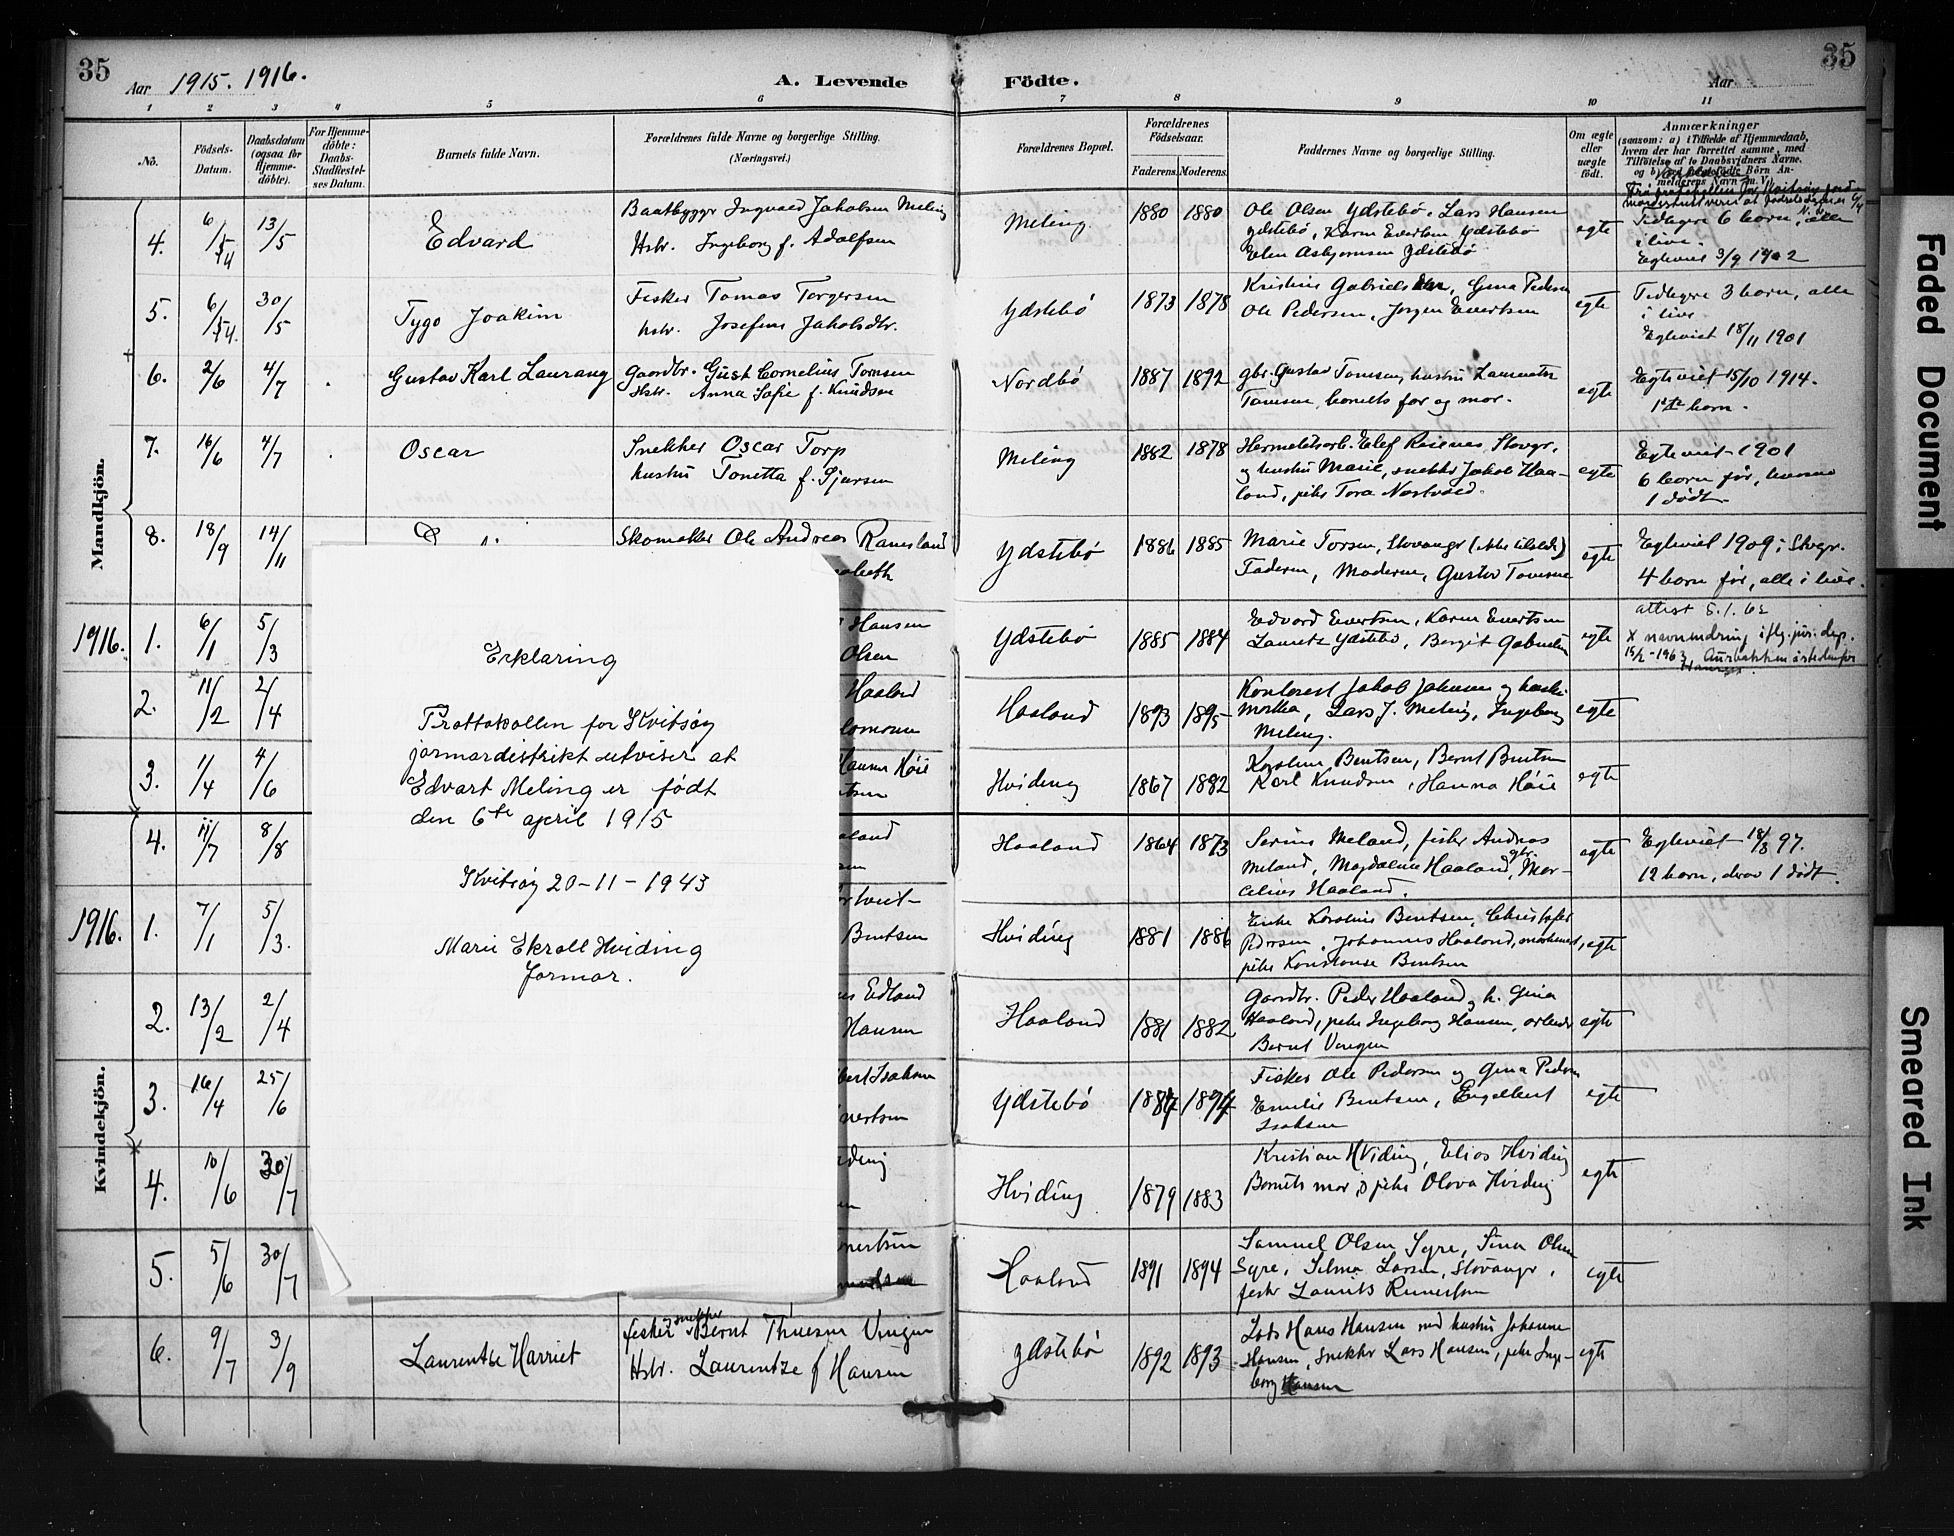 35
Aar 1915. 1916.
A. Levende Födte.
Aar
35
1 2 3 4 5 6 7 8 9 10 11
No.
Födsels-Datum.
Daabsdatum (ogsaa for Hjemme-döbte).
For Hjemme-döbte: Daabs-Stadfæstel-ses Datum.
Barnets fulde Navn.
Forældrenes fulde Navne og borgerlige Stilling. (Næringsvei.)
Forældrenes Bopæl.
Forældrenes Födselsaar.
Faderens. Moderens.
Faddernes Navne og borgerlige Stilling.
Om ægte eller uægte födt.
Anmærkninger
(saasom: a) i Tilfælde af Hjemmedaab, hvem der har forrettet samme, med Tilföielse af to Daabsvidners Navne,
Mandkjön.
4. 6/4 13/5 Edvard
Baatbygger Ingvald Jakobsen Meling
Hstr. Ingeborg f. Adolfsen
Meling 1880 1880
Ole Olsen Ydstebö, Lars Hansen
Ydstebö, Karen Evertsen Ydstebö
Elen Asbjornsen Ydstebö
egte
Tidligere 6 born, alle
i live.
Egteviet 3/9 1902
5. 6/4 30/5 Tygo Joakim
Fisker Tomas Torgersen
hstr. Josefine Jakobsdtr.
Ydstebö 1873 1878
Ole Pedersen, Jorgen Evertsen
egte
Tidligere 3 born, alle
i live
Egteviet 18/11 1901
6. 2/6 4/7 Gustav Karl Laurang
Gaardbr. Gust Cornelius Tomsen
Hstr. Anna Sofie f. Knudsen
Nordbö 1887 1892
barnets far og mor.
egte
Egteviet 15/10 1914.
1ste born.
7. 16/6 4/7 Oscar
Snekker Oscar Torp
hustru Tonetta f. Gjersen
Meling 1882 1878
og hustru Marie, snekker Jakob Haa-
land, pike Tora Nortvæd.
egte
Egteviet 1901
6 born för, hvorav
1 dödt.
8. 18/9 14/11
Skomaker Ole Andreas Ramsland
Ydstebö 1886 1885
Marie Torsen, Stavanger (ikke tilstede)
Faderen, Moderen, Gustav Tomsen
egte
Egteviet 1909 i Stvgr.
4 born för, alle i live.
1916. 1. 6/1 5/3
Hansen
Olsen
Ydstebö 1885 1884
Edvard Evertsen, Karen Evertsen
Lauritz Ydstebö, Bergit Gabrielsen
egte
attest 5.1.62
x navnendring ifly. jus. dep.
2. 11/2 2/4
Haaland
Salomonsen
Haaland 1893 1895
Martha, Lars J. Meling, Ingeborg
Meling.
egte
3. 1/4 4/6
Hansen Höie
Hviding 1867 1892
Karoline Bentsen, Bernt Bentsen
Karl Knudsen, Hanna Höie
egte
4. 11/7 8/8
Haaland 1864 1873
Serine Meland, fisker Andreas
Meland, Magdalene Haaland, gbr. Mar-
celius Haaland.
egte
Egteviet 18/3 97.
12 born, derav 1 dödt.
Kvindekjön.
1916. 1. 7/1 5/3.
Bentsen
Hviding 1881 1886
Enke Karoline Bentsen, Christofer
Pedersen, Johannes Haaland,
pike Konstanse Bentsen
egte
2. 13/2 2/4
Edland
Hansen
Haaland 1881 1882
Gaardbr. Peder Haaland, h. Gina
Haaland, pike Ingeborg Hansen, arbeider
Bernt Vingen
egte
3. 16/4 25/6
Isaksen
Evertsen
Ydstebö 1887 1894
Fisker Ole Pedersen og Gina Pedersen
Emilie Bentsen, Engelbert
Isaksen
egte
4. 10/6 30/7
Hviding 1879 1883
Kristian Hviding, Elias Hviding
Barnets mor, pike Olava Hviding
egte
5. 5/6 30/7
Haaland 1891 1894
Samuel Olsen Syre, Sina Olsen
Syre, Selma Larsen, Stavanger,
fisker Laurits
egte
6. 9/7 3/9 Laurentze Harriet
fisker snekker Bernt Thuesen Vingen
Hstr. Laurentze f Hansen
Ydstebö 1892 1893
Lods Hans Hansen med hustru Johanne
Hansen, snekker Lars Hansen, pike Inge-
borg Hansen
egte
Erklaring
Prottokollen for Kvitsöy
jormordistrikt utviser at
Edvart Meling er födt
den 6te april 1915
Kvitsöy 20-11-1943
Marie Ekroll Hviding
Jormor.
Faded Document
Smeared Ink